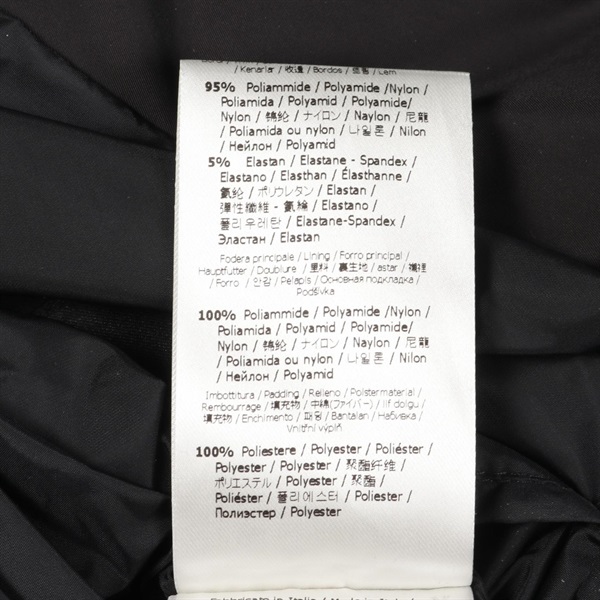 / Kenarlar / 收邊 / Bordos / 밑단 / Lem
95% Poliammide / Polyamide /Nylon /
Poliamida / Polyamid / Polyamide/
Nylon / 锦纶 / ナイロン / Naylon / 尼龍
/ Poliamida ou nylon / 나일론 / Nilon
/ Нейлон / Polyamid
5% Elastan / Elastane - Spandex /
Elastano / Elasthan / Élasthanne /
氨纶 / ポリウレタン / Elastan /
彈性纖維 - 氨綸 / Elastano /
폴리우레탄 / Elastane-Spandex /
Эластан / Elastan
Fodera principale / Lining / Forro principal /
Hauptfutter / Doublure / 里料 / 裏生地 / astar / 襯裡
/ Forro / 안감 / Pelapis / Основная подкладка /
Podšívka
100% Poliammide / Polyamide /Nylon /
Poliamida / Polyamid / Polyamide/
Nylon / 锦纶 / ナイロン / Naylon / 尼龍
/ Poliamida ou nylon / 나일론 / Nilon
/ Нейлон / Polyamid
Imbottitura / Padding / Relleno / Polstermaterial /
Rembourrage / 填充物 / 中綿(ファイバー) / lif dolgu /
填充物 / Enchimento / 패딩 / Bantalan / Набивка /
Vnitřní výplň
100% Poliestere / Polyester / Poliéster /
Polyester / Polyester / 聚酯纤维 /
ポリエステル / Polyester / 聚酯 /
Poliéster / 폴리에스터 / Poliester /
Полиэстер / Polyester